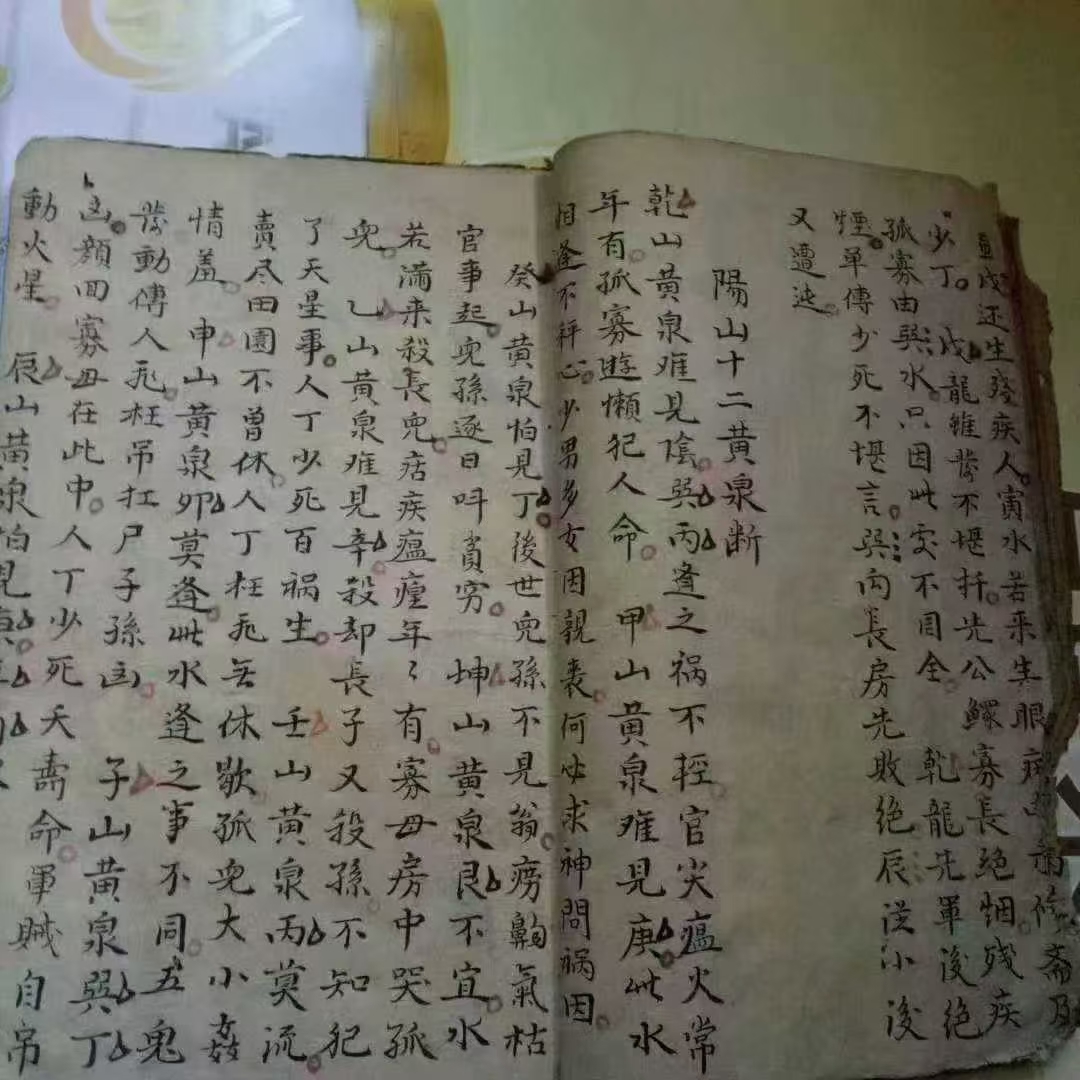 戌还生癈疾人寅水若来生眼
少丁。戌龍雖發不堪扦先公鰥寡長絕烟残疾
孤寡由巽水只因此实不周全　乾龍先軍後絕
煙。單傳少死不堪言巽丙長房先敗絕辰洪小後
又遭迍
陽山十二黃泉断
乾山黃泉难見陰巽丙逢之祸不輕官灾瘟火常
年有孤寡遊懒犯人命　甲山黃泉难見庚此水
相逢不秤心少男多女因親丧何必求神問祸因
癸山黃泉怕見丁後世兒孫不見翁痨鼩氣枯
官事起兒孫逐日呌貧穷　坤山黃泉艮不宜水
若滿来殺長兒痁疾瘟瘽年々有寡母房中哭孤
兒　乙山黃泉难見辛殺却長子又殺孫不知犯
了天星事人丁少死百祸生　壬山黃泉丙莫流
賣尽田園不曽休人丁枉死无休歇孤兒大小姦
情羞　申山黃泉卯莫逢此水逢之事不同五鬼
發動傳人死枉吊扛尸子孫凶　子山黃泉巽丁
凶顔回寡母在此中人丁少死夭壽命軍贼自吊
動火星　辰山黃泉怕見